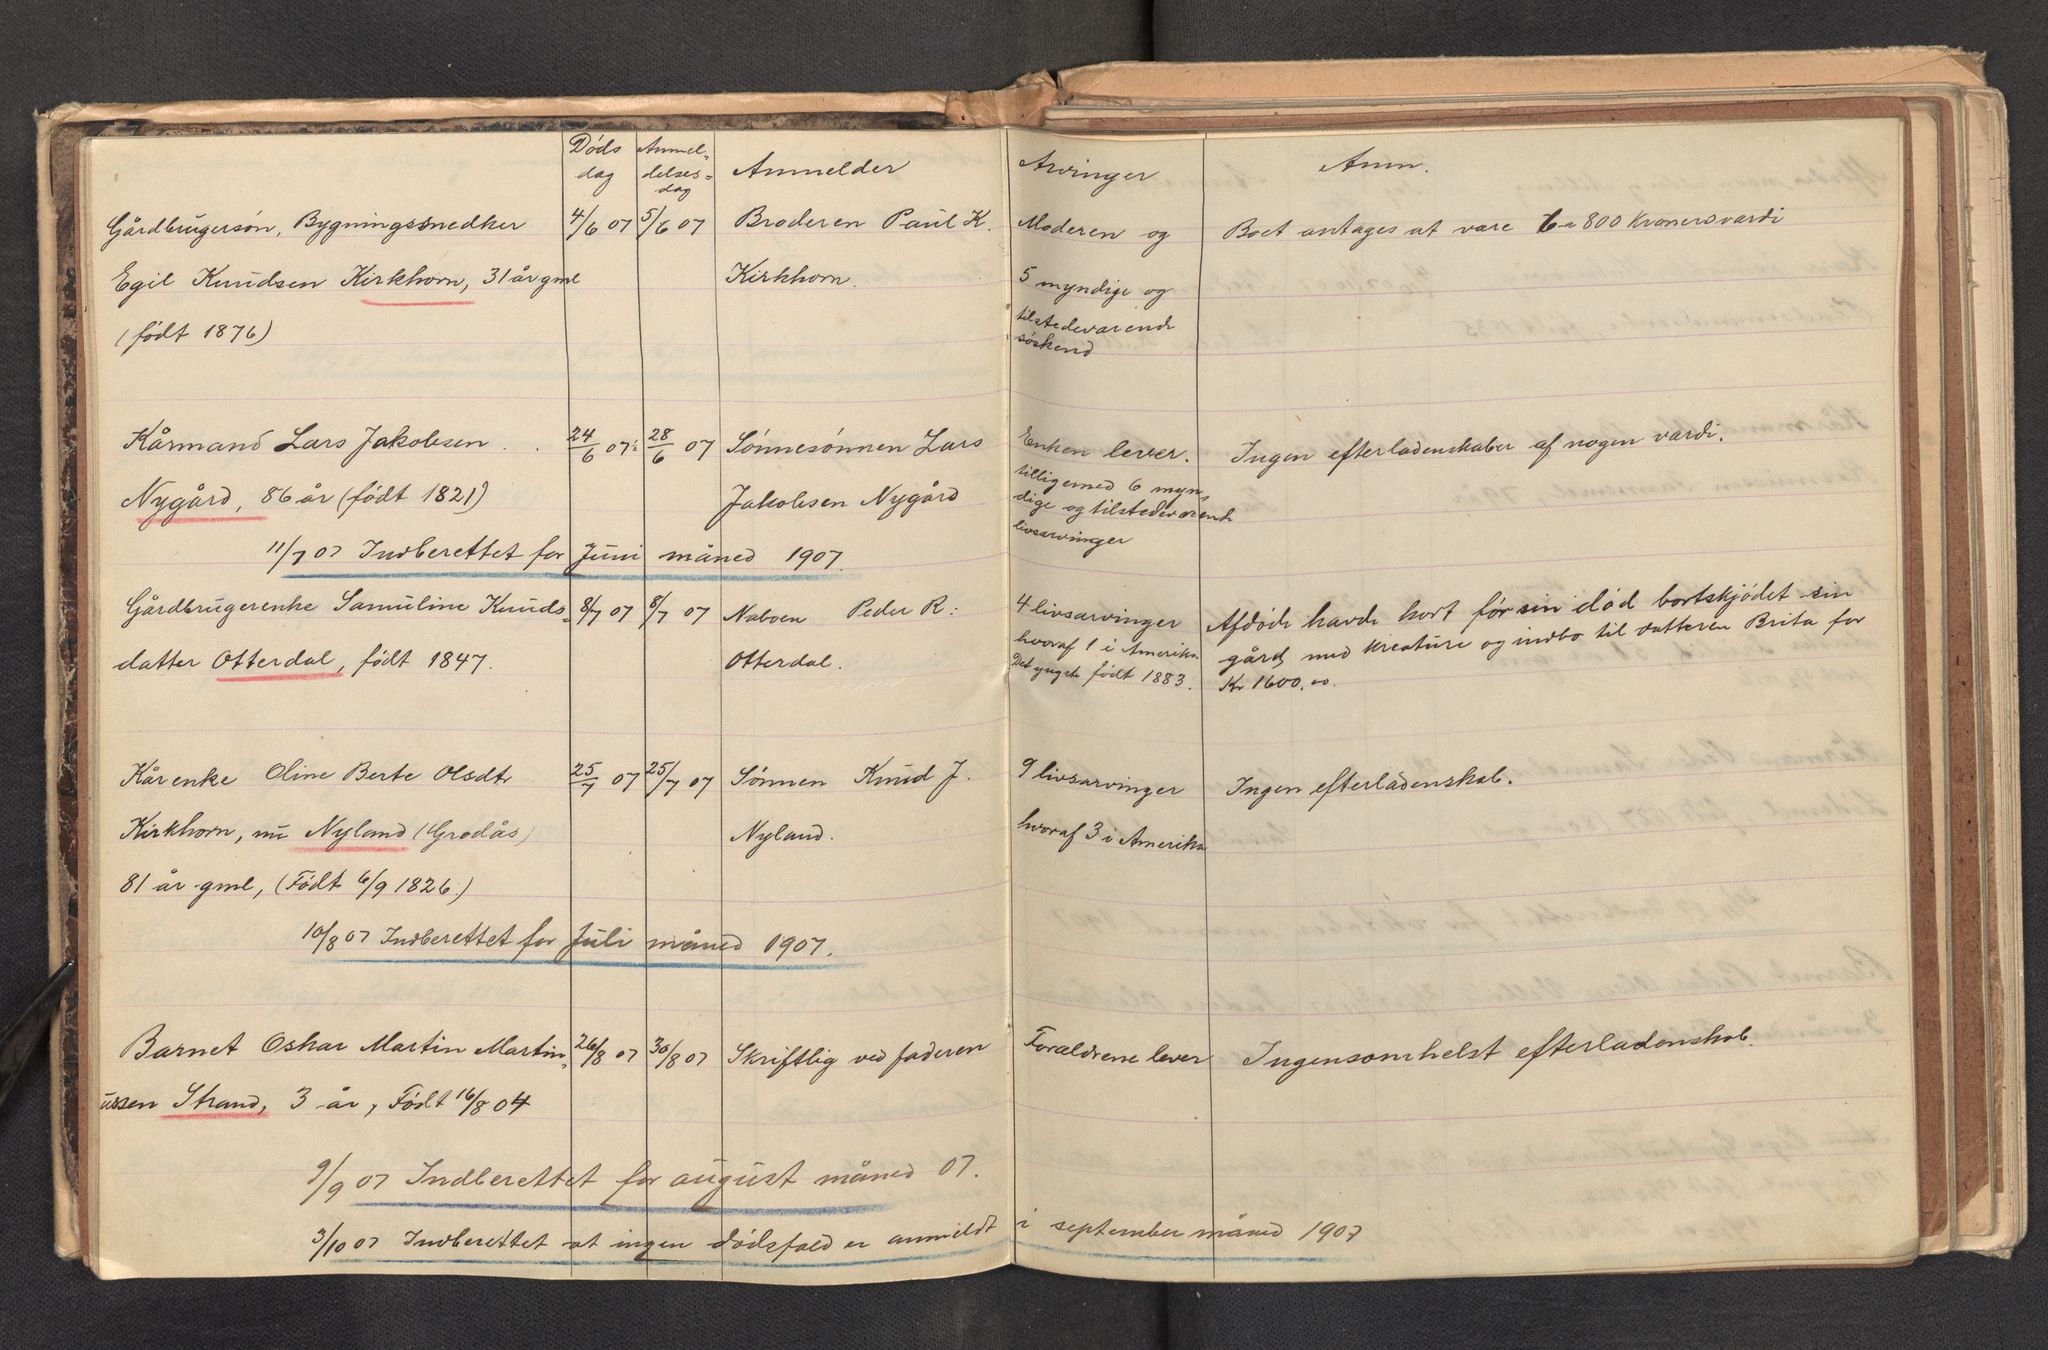 Døds Anmel- Anmelder Arvinger Anm.
dag delses=
dag
Gårdbrugersøn, Bygningssnedker 4/6 07 5/6 07 Broderen Paul K. Moderen og Boet antages at være 6 a 800 Kroners værdi
Egil Knudsen Kirkhorn, 31 år gml Kirkhorn. 5 myndige og
(født 1876) tilstedeværende
søskend
Kårmand Lars Jakobsen 24/6 07 28/6 07 Sønnesønnen Lars Enken lever. Ingen efterladenskaber af nogen værdi.
Nygård, 86 år (født 1821) Jakobsen Nygård tilligemed 6 myn-
dige og tilstedeværende
livsarvinger
11/7 07 Indberettet for Juni måned 1907.
Gårdbrugerenke Samuline Knuds= 8/7 07 8/7 07 Naboen Peder R: 4 livsarvinger Afdøde havde kort før sin død bortskjødet sin
datter Otterdal, født 1847. Otterdal. hvoraf 1 i Amerika. gård med kreature og indbo til datteren Brita for
Det yngste født 1883. Kr 1600.00.
Kårenke Oline Berte Olsdtr 25/7 07 25/7 07 Sønnen Knud J. 9 livsarvinger Ingen efterladenskab.
Kirkhorn, nu Nyland (Grodås) Nyland. hvoraf 3 i Amerika
81 år gml, (Født 6/9 1826.)
10/8 07 Indberettet for Juli måned 1907.
Barnet Oskar Martin Martin= 26/8 07 30/8 07 Skriftlig ved faderen Forældrene lever Ingensomhelst efterladenskab.
ussen Strand, 3 år, Født 16/8 04
9/9 07 Indberettet for august måned 07.
3/10 07 Indberettet at ingen dødsfald er anmeldt i september måned 1907